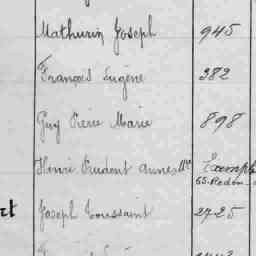 Mathurin Joseph 945
François Eugène 382
Guy Pierre Marie 898
Henri Prudent Annes Mie Exempt
65. Redon
Joseph Toussaint 2725